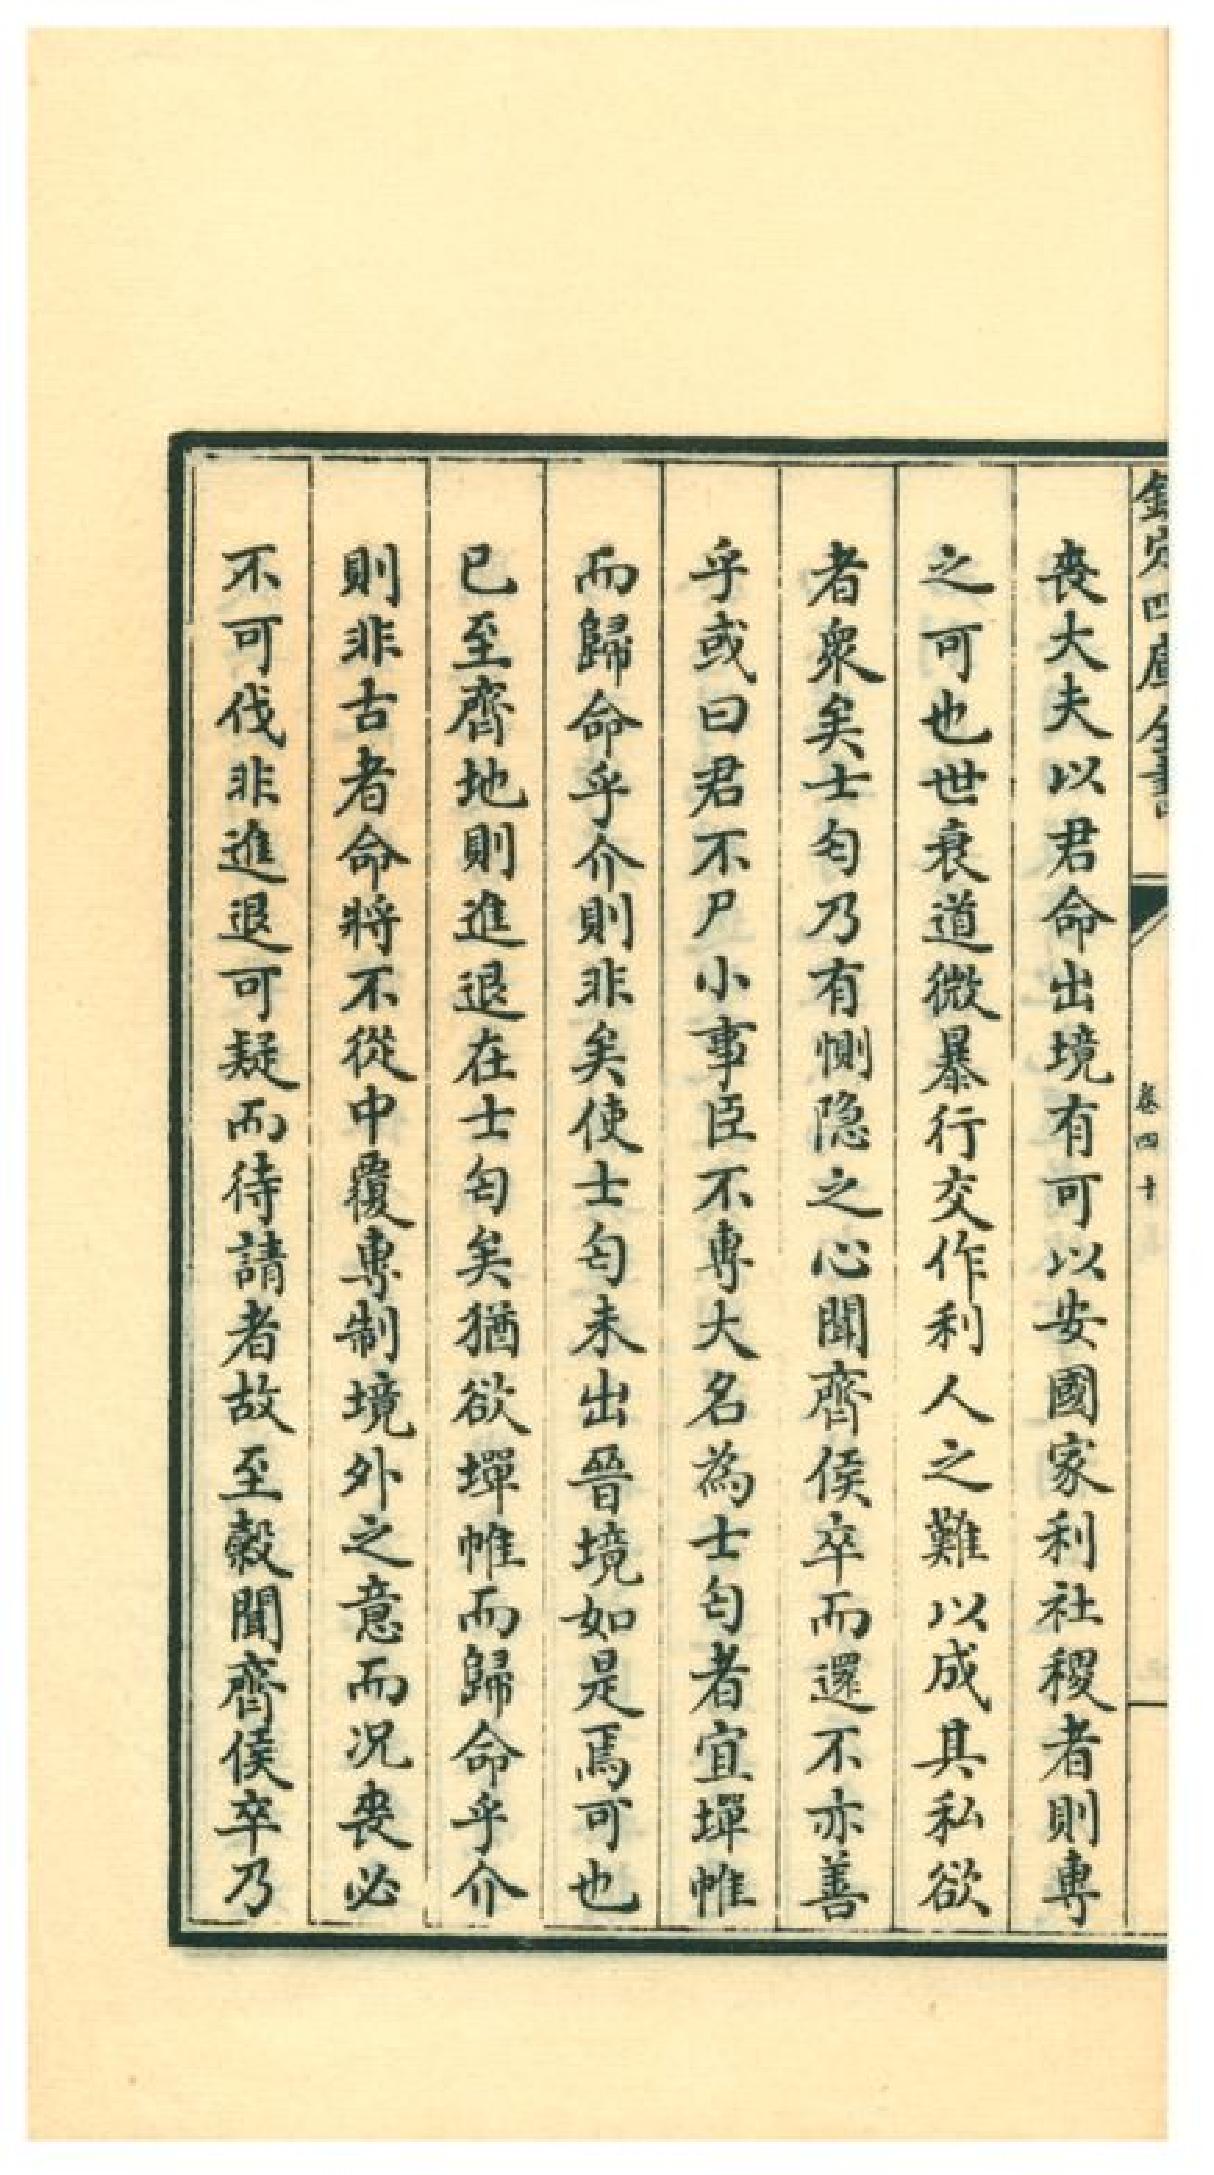 欽定四庫全書
卷四十
喪大夫以君命出境有可以安國家利社稷者則專
之可也世衰道微暴行交作利人之難以成其私欲
者衆矣士匄乃有惻隐之心聞齊侯卒而還不亦善
乎或曰君不尸小事臣不專大名為士匄者宜墠帷
而歸命乎介則非矣使士匄未出晉境如是焉可也
已至齊地則進退在士匄矣猶欲墠帷而歸命乎介
則非古者命將不從中覆專制境外之意而况喪必
不可伐非進退可疑而待請者故至榖聞齊侯卒乃